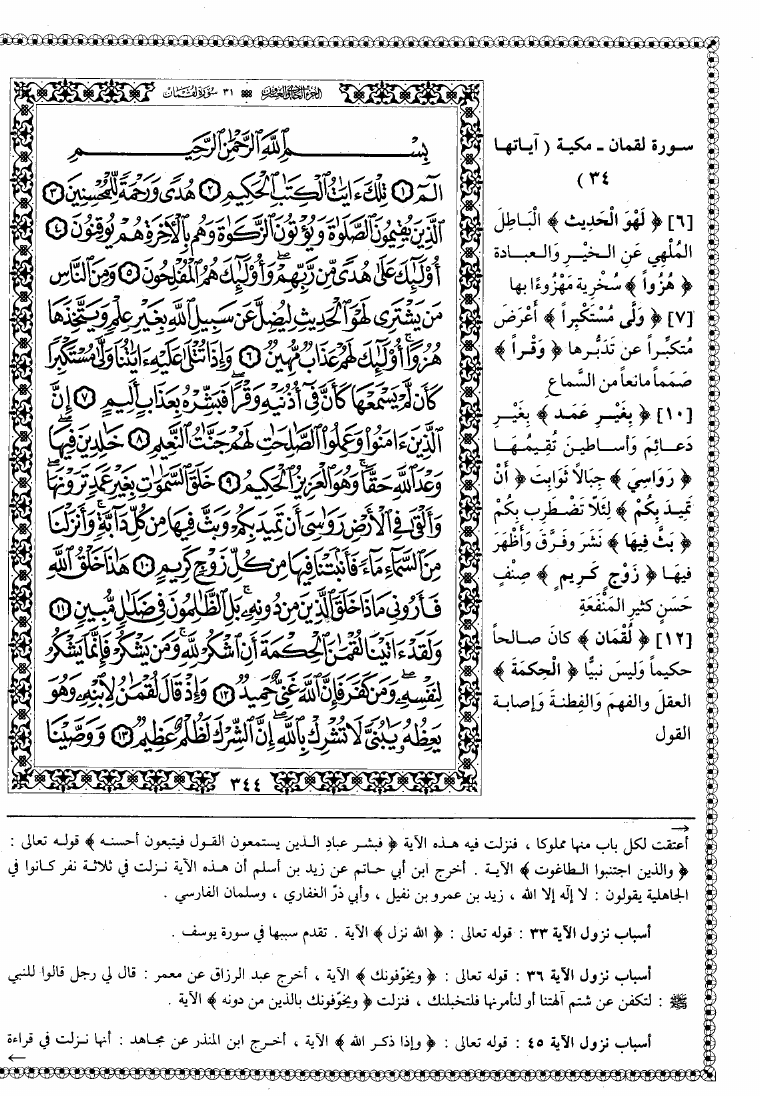 الجزء الحادي والعشرون ٣١ سورة لقمان
بِسْمِ اللَّهِ الرَّحْمَٰنِ الرَّحِيمِ
الٓمٓ ۝١ تِلْكَ ءَايَٰتُ الْكِتَٰبِ الْحَكِيمِ ۝٢ هُدًى وَرَحْمَةً لِّلْمُحْسِنِينَ ۝٣
الَّذِينَ يُقِيمُونَ الصَّلَوٰةَ وَيُؤْتُونَ الزَّكَوٰةَ وَهُم بِالْءَاخِرَةِ هُمْ يُوقِنُونَ ۝٤
أُوْلَٰٓئِكَ عَلَىٰ هُدًى مِّن رَّبِّهِمْ ۖ وَأُوْلَٰٓئِكَ هُمُ الْمُفْلِحُونَ ۝٥ وَمِنَ النَّاسِ
مَن يَشْتَرِى لَهْوَ الْحَدِيثِ لِيُضِلَّ عَن سَبِيلِ اللَّهِ بِغَيْرِ عِلْمٍ وَيَتَّخِذَهَا
هُزُوًا ۚ أُوْلَٰٓئِكَ لَهُمْ عَذَابٌ مُّهِينٌ ۝٦ وَإِذَا تُتْلَىٰ عَلَيْهِ ءَايَٰتُنَا وَلَّىٰ مُسْتَكْبِرًا
كَأَن لَّمْ يَسْمَعْهَا كَأَنَّ فِىٓ أُذُنَيْهِ وَقْرًا ۖ فَبَشِّرْهُ بِعَذَابٍ أَلِيمٍ ۝٧ إِنَّ
الَّذِينَ ءَامَنُوا وَعَمِلُوا الصَّٰلِحَٰتِ لَهُمْ جَنَّٰتُ النَّعِيمِ ۝٨ خَٰلِدِينَ فِيهَا ۖ
وَعْدَ اللَّهِ حَقًّا ۚ وَهُوَ الْعَزِيزُ الْحَكِيمُ ۝٩ خَلَقَ السَّمَٰوَٰتِ بِغَيْرِ عَمَدٍ تَرَوْنَهَا ۖ
وَأَلْقَىٰ فِى الْأَرْضِ رَوَٰسِىَ أَن تَمِيدَ بِكُمْ وَبَثَّ فِيهَا مِن كُلِّ دَآبَّةٍ ۚ وَأَنزَلْنَا
مِنَ السَّمَآءِ مَآءً فَأَنۢبَتْنَا فِيهَا مِن كُلِّ زَوْجٍ كَرِيمٍ ۝١٠ هَٰذَا خَلْقُ اللَّهِ
فَأَرُونِى مَاذَا خَلَقَ الَّذِينَ مِن دُونِهِۦ ۚ بَلِ الظَّٰلِمُونَ فِى ضَلَٰلٍ مُّبِينٍ ۝١١
وَلَقَدْ ءَاتَيْنَا لُقْمَٰنَ الْحِكْمَةَ أَنِ اشْكُرْ لِلَّهِ ۚ وَمَن يَشْكُرْ فَإِنَّمَا يَشْكُرُ
لِنَفْسِهِۦ ۖ وَمَن كَفَرَ فَإِنَّ اللَّهَ غَنِىٌّ حَمِيدٌ ۝١٢ وَإِذْ قَالَ لُقْمَٰنُ لِابْنِهِۦ وَهُوَ
يَعِظُهُۥ يَٰبُنَىَّ لَا تُشْرِكْ بِاللَّهِ ۖ إِنَّ الشِّرْكَ لَظُلْمٌ عَظِيمٌ ۝١٣ وَوَصَّيْنَا
٣٤٤
سورة لقمان ـ مكية ( آياتها
٣٤ )
[٦] ﴿ لَهْوَ الْحَدِيث ﴾ الْبَاطِلَ
المُلْهِي عَنِ الـخيْرِ وَالـعبـادة
﴿ هُزُواً ﴾ سخْرِية مَهْزُوءًا بها
[٧] ﴿ وَلَّى مُسْتَكْبِراً ﴾ أَعْرَضَ
مُتكبِّراً عن تَدَبُّرها ﴿ وَقْراً ﴾
صَمماً مانعاً من السَّماع
[١٠] ﴿ بِغَيْرِ عَمَد ﴾ بِغَيْرِ
دَعـائِمَ وَأساطينَ تُقيمُهَـا
﴿ رَوَاسِيَ ﴾ جِبَالاً ثَوَابِتَ ﴿ أَنْ
تَمِيدَ بِكُمْ ﴾ لِئَلَا تَضْطَرِب بِكُمْ
﴿ بَثَّ فِيهَا ﴾ نَشَرَ وفَرَّقَ وَأَظْهَرَ
فيهَا ﴿ زَوْجٍ كَرِيمٍ ﴾ صِنْفٍ
حَسَنٍ كثيرِ المَنْفَعَةِ
[١٢] ﴿ لُقْمَان ﴾ كانَ صـالحاً
حكيماً وَليسَ نبيًّا ﴿ الْحِكمَةَ ﴾
العقلَ والفهمَ وَالفِطنةَ وَإصابةَ
القول
أعتقت لكل باب منها مملوكا ، فنزلت فيه هـذه الآية ﴿ فبشر عبادِ الـذين يستمعون القول فيتبعون أحسنه ﴾ قولـه تعالى :
﴿ والذين اجتنبوا الـطاغوت ﴾ الآيـة . أخرج ابن أبي حـاتم عن زيد بن أسلم أن هـذه الآية نـزلت في ثلاثـة نفر كـانوا في
الجاهلية يقولون : لا إله إلا الله ، زيد بن عمرو بن نفيل ، وأبي ذرّ الغفاري ، وسلمان الفارسي .
أسباب نزول الآية ٣٣ : قوله تعالى : ﴿ الله نزل ﴾ الآية . تقدم سببها في سورة يوسف .
أسباب نزول الآية ٣٦ : قوله تعالى : ﴿ ويخوّفونك ﴾ الآية ، أخرج عبد الرزاق عن معمر : قال لي رجل قالوا للنبي
ﷺ : لتكفن عن شتم آلهتنا أو لنأمرنها فلتخبلنك ، فنزلت ﴿ ويخوّفونك بالذين من دونه ﴾ الآية .
أسباب نزول الآية ٤٥ : قوله تعالى : ﴿ وإذا ذكـر الله ﴾ الآية ، أخـرج ابن المنذر عن مجـاهد : أنها نـزلت في قراءة